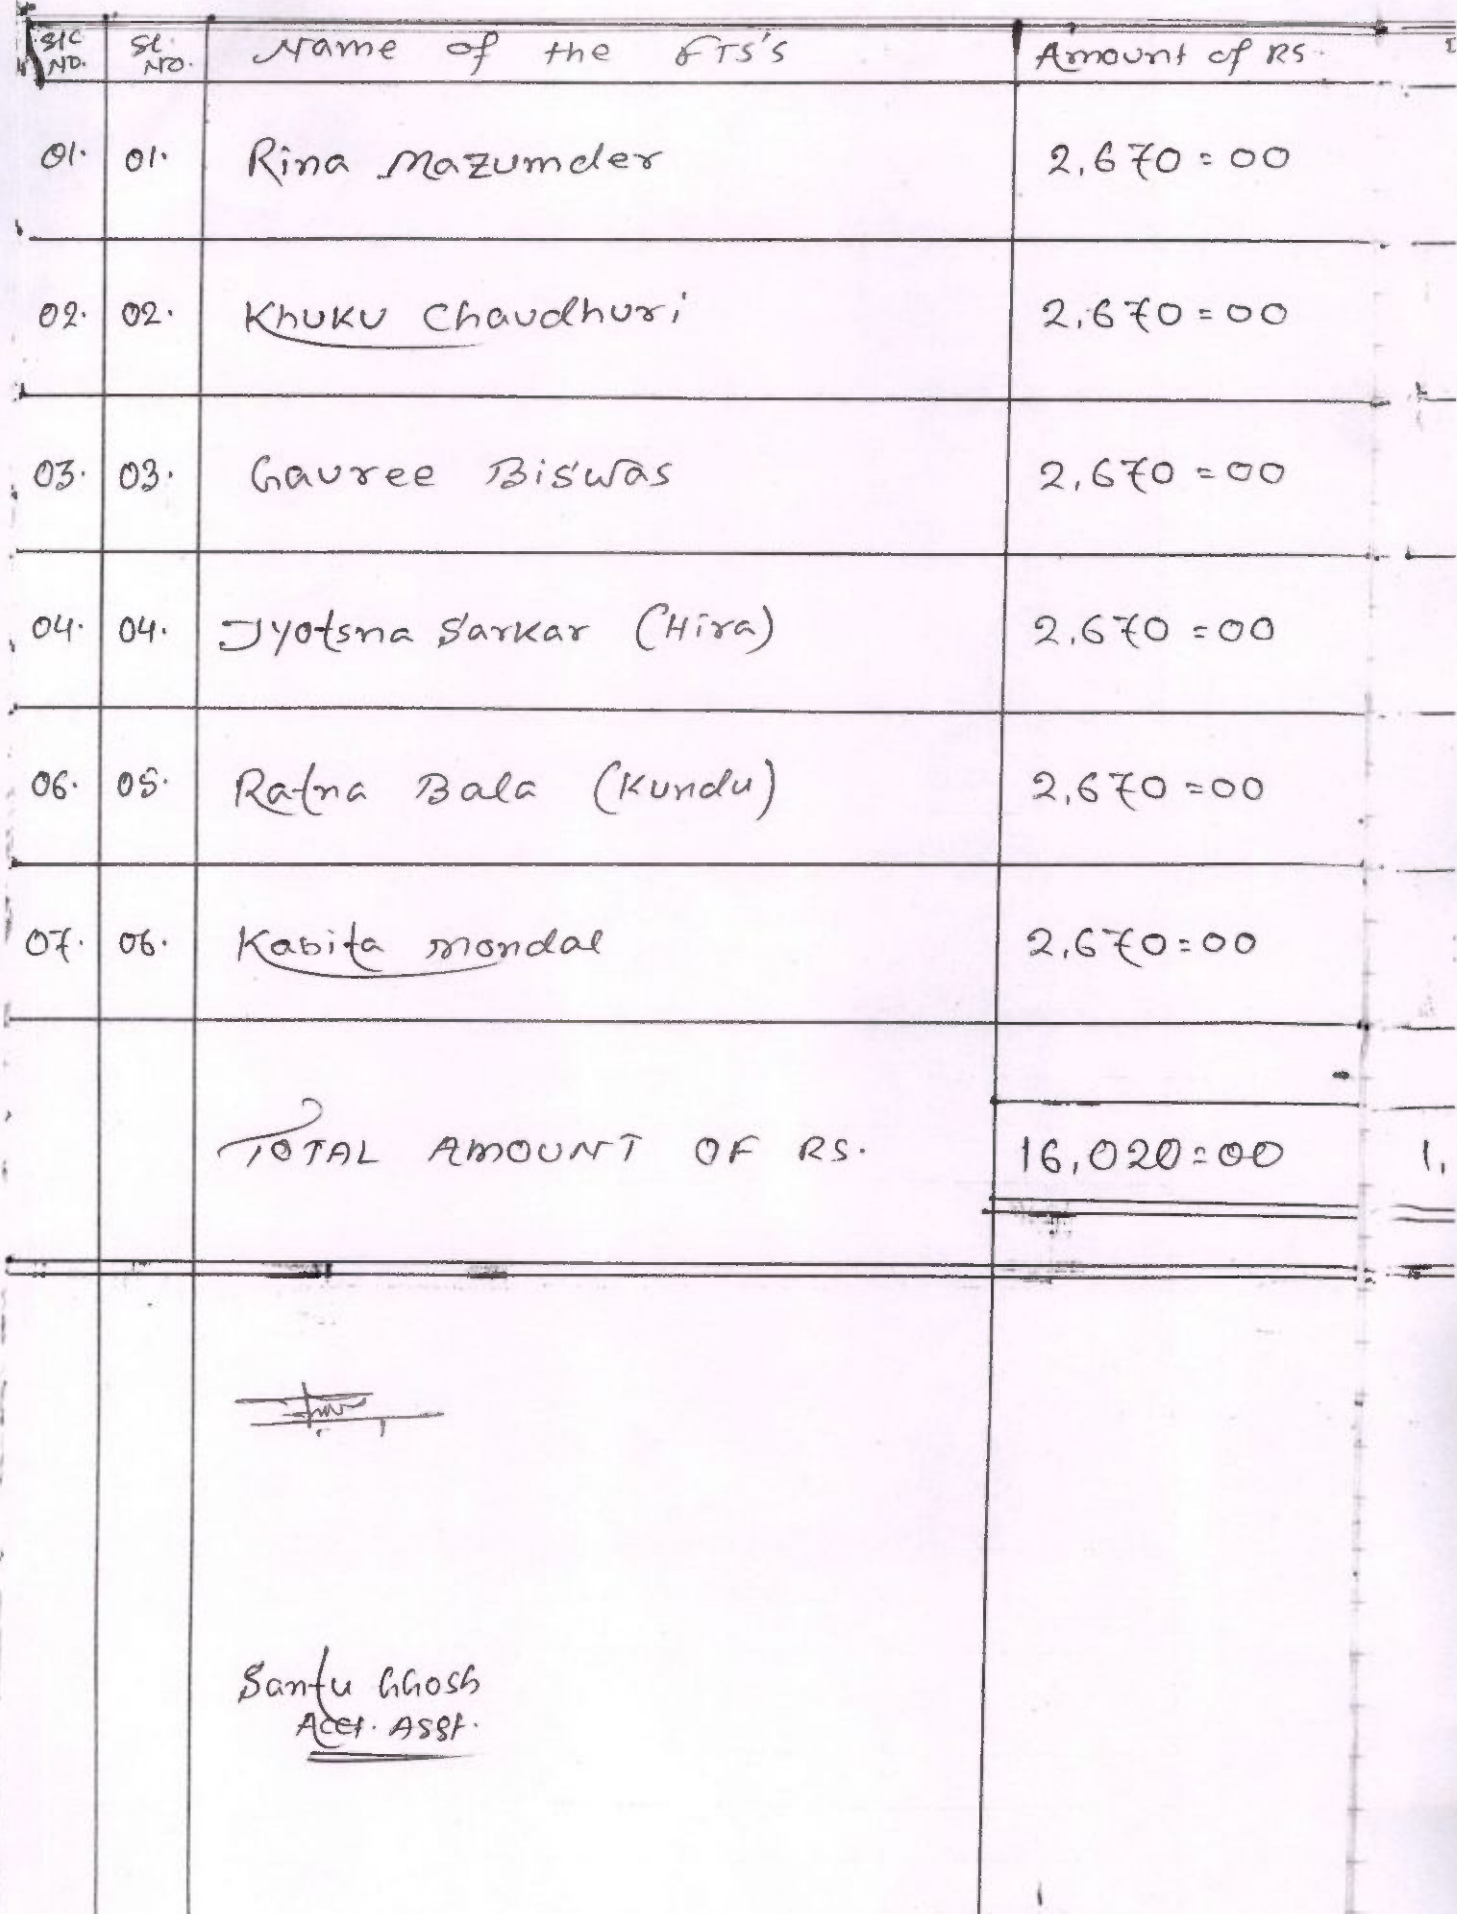 S/C NO. Sl. NO. Name of the FTS's Amount of RS.
01. 01. Rina Mazumder 2,670=00
02. 02. Khuku Chaudhuri 2,670=00
03. 03. Gauree Biswas 2,670=00
04. 04. Jyotsna Sarkar (Hira) 2,670=00
06. 05. Ratna Bala (Kundu) 2,670=00
07. 06. Kabita mondal 2,670=00
TOTAL AMOUNT OF RS. 16,020=00 1,
Santu Ghosh
Acct. Asst.